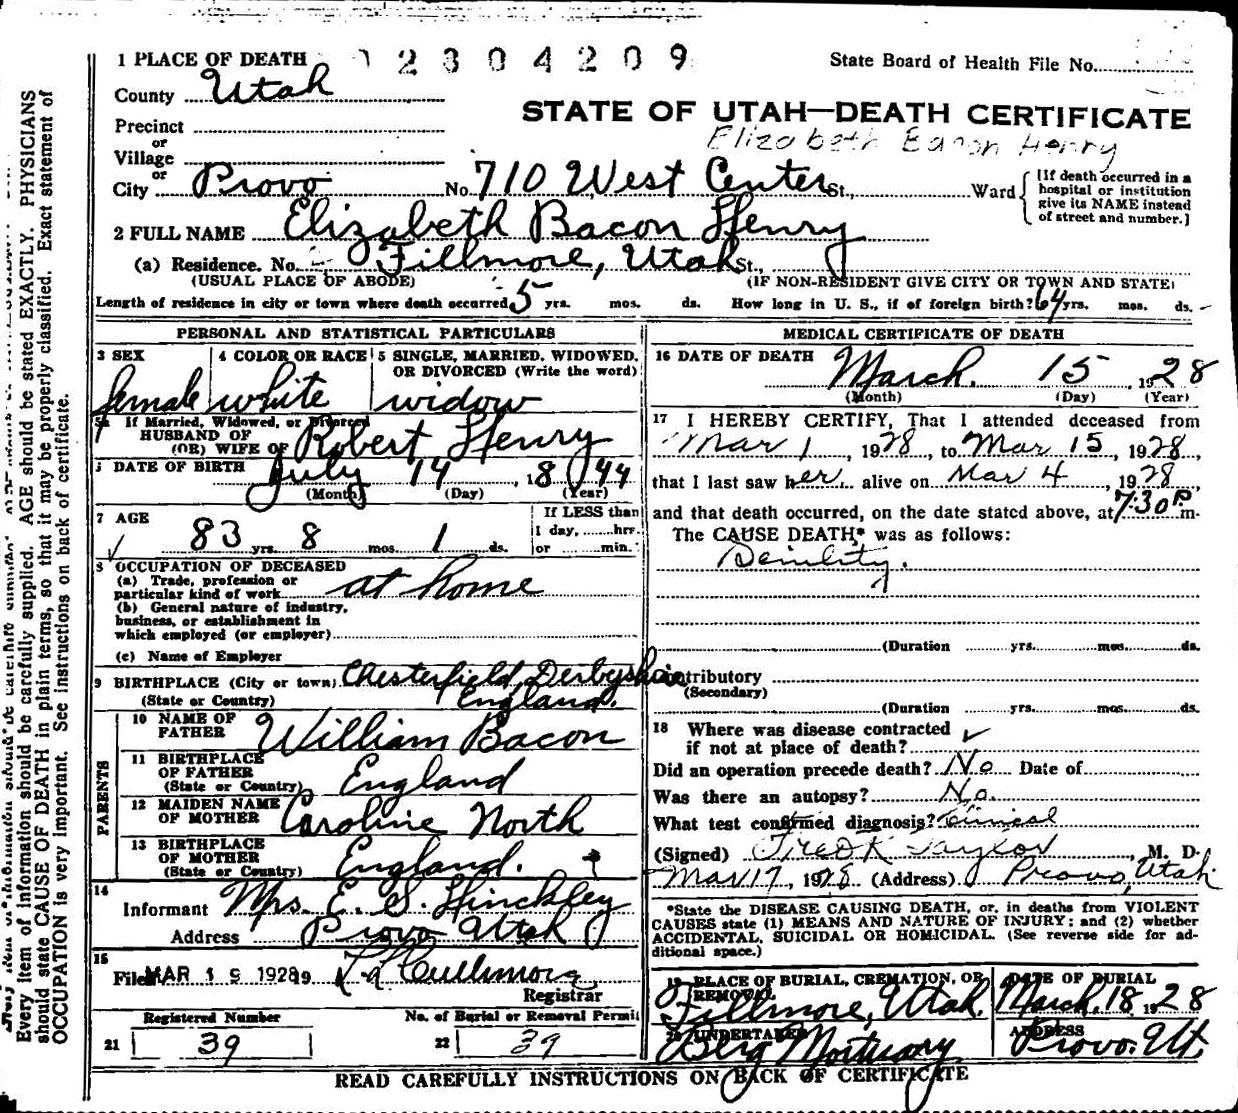 1 PLACE OF DEATH 2304209
State Board of Health File No.
County Utah
STATE OF UTAH—DEATH CERTIFICATE
Precinct
Elizabeth Bacon Henry
or
Village
or
City Provo No. 710 West Center St., Ward
[If death occurred in a
hospital or institution
give its NAME instead
of street and number.]
2 FULL NAME Elizabeth Bacon Henry
(a) Residence. No. Fillmore, Utah St.,
(USUAL PLACE OF ABODE) (IF NON-RESIDENT GIVE CITY OR TOWN AND STATE)
Length of residence in city or town where death occurred 5 yrs. mos. ds. How long in U. S., if of foreign birth? 64 yrs. mos. ds.
PERSONAL AND STATISTICAL PARTICULARS
3 SEX
female
4 COLOR OR RACE
white
5 SINGLE, MARRIED, WIDOWED,
OR DIVORCED (Write the word)
widow
5a If Married, Widowed, or Divorced
HUSBAND OF
(OR) WIFE OF Robert Henry
DATE OF BIRTH July 14, 1844
(Month) (Day) (Year)
7 AGE
83 yrs. 8 mos. 1 ds.
If LESS than
1 day, hrs.
or min.
8 OCCUPATION OF DECEASED
(a) Trade, profession or
particular kind of work at home
(b) General nature of industry,
business, or establishment in
which employed (or employer)
(c) Name of Employer
9 BIRTHPLACE (City or town) Chesterfield, Derbyshire
(State or Country) England.
PARENTS
10 NAME OF
FATHER William Bacon
11 BIRTHPLACE
OF FATHER
(State or Country) England
12 MAIDEN NAME
OF MOTHER Caroline North
13 BIRTHPLACE
OF MOTHER
(State or Country) England.
14
Informant Mrs. E. S. Hinckley
Address Provo Utah
15
Filed MAR 19 1928 19 Cullimore
Registrar
Registered Number
21 39
No. of Burial or Removal Permit
22 39
MEDICAL CERTIFICATE OF DEATH
16 DATE OF DEATH March. 15, 1928
(Month) (Day) (Year)
17 I HEREBY CERTIFY, That I attended deceased from
Mar 1, 1928, to Mar 15, 1928,
that I last saw her alive on Mar 4, 1928,
and that death occurred, on the date stated above, at 7:30 P m.
The CAUSE DEATH,* was as follows:
(Duration yrs. mos. ds.
Contributory
(Secondary)
(Duration yrs. mos. ds.
18 Where was disease contracted
if not at place of death?
Did an operation precede death? No Date of
Was there an autopsy? No.
What test confirmed diagnosis? Clinical
(Signed) Fred K Taylor, M. D.
Mar 17, 1928 (Address) Provo, Utah
*State the DISEASE CAUSING DEATH, or, in deaths from VIOLENT
CAUSES state (1) MEANS AND NATURE OF INJURY; and (2) whether
ACCIDENTAL, SUICIDAL OR HOMICIDAL. (See reverse side for ad-
ditional space.)
19 PLACE OF BURIAL, CREMATION, OR
REMOVAL
Fillmore, Utah.
DATE OF BURIAL
March. 18 1928
20 UNDERTAKER
Berg Mortuary
ADDRESS
Provo. Ut.
READ CAREFULLY INSTRUCTIONS ON BACK OF CERTIFICATE
Every item of information should be carefully supplied. AGE should be stated EXACTLY. PHYSICIANS
should state CAUSE OF DEATH in plain terms, so that it may be properly classified. Exact statement of
OCCUPATION is very important. See instructions on back of certificate.